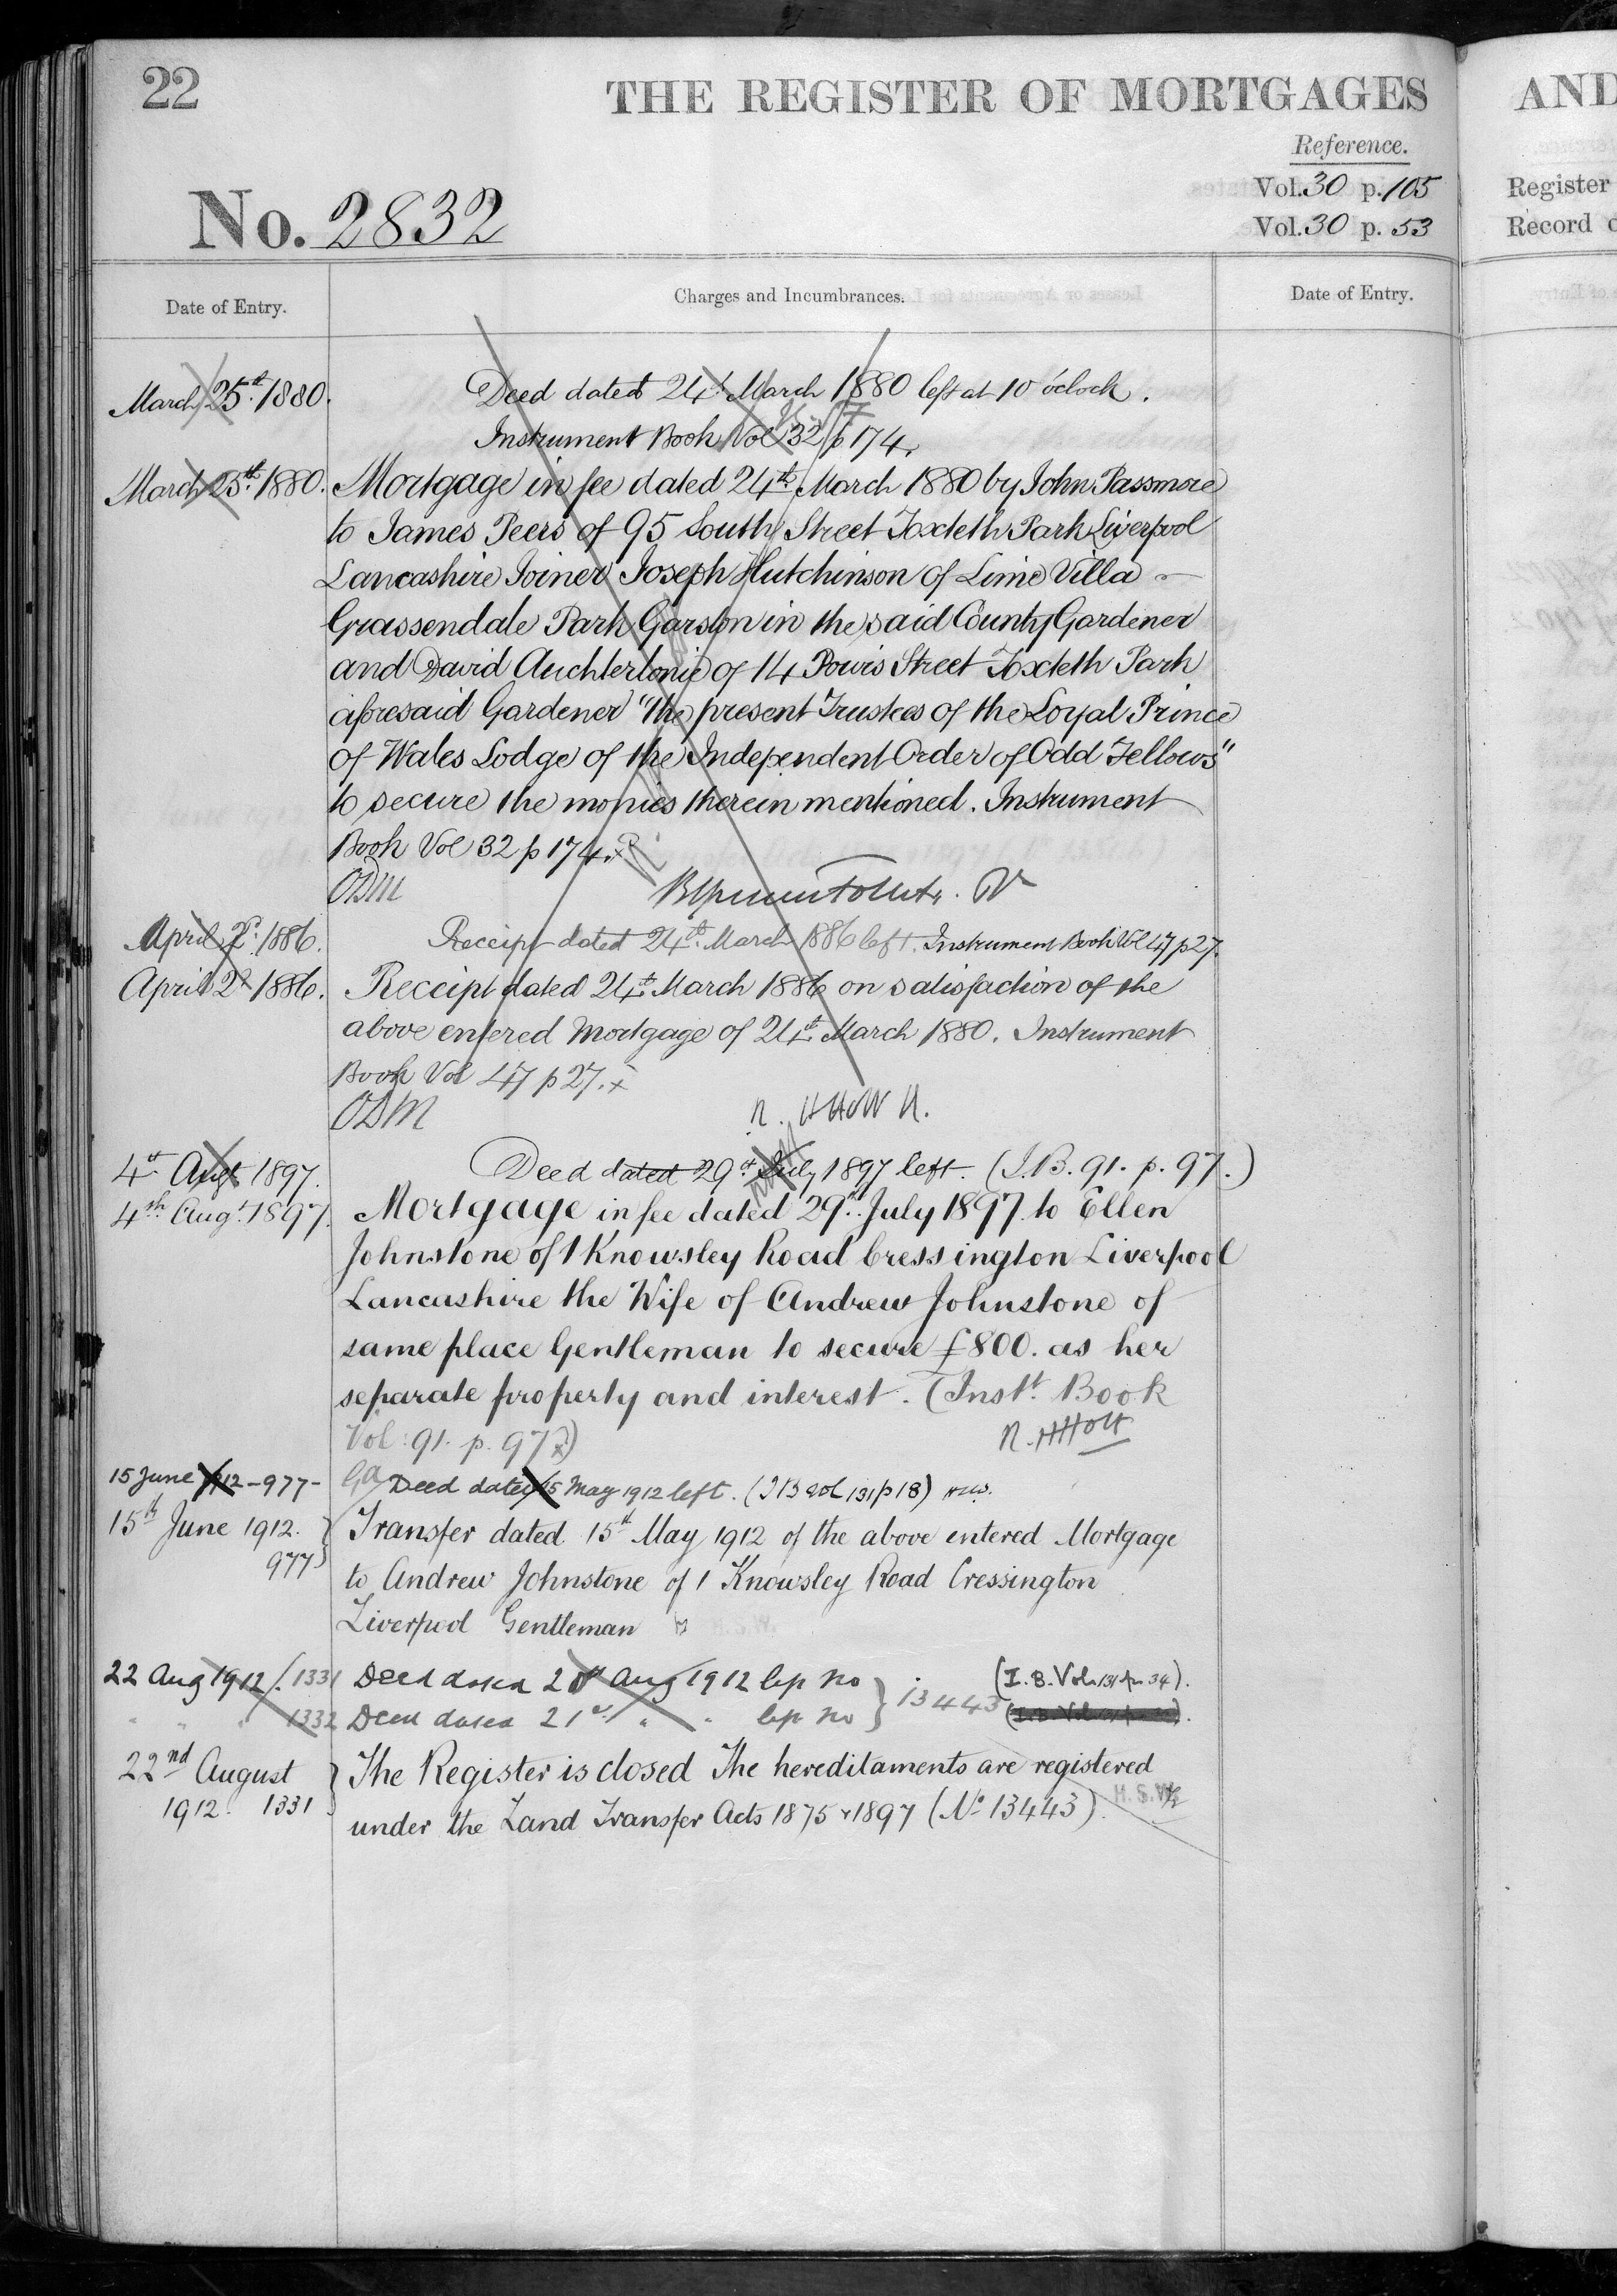 22
THE REGISTER OF MORTGAGES
AND
Reference.
Vol. 30 p. 105
Register
No. 2832
Vol. 30 p. 53
Record
Date of Entry.
Charges and Incumbrances.
Date of Entry.
March 25th 1880.
Deed dated 24th March 1880 left at 10 o'clock.
Instrument Book Vol 32 p 174.
March 25th 1880.
Mortgage in fee dated 24th March 1880 by John Passmore
to James Peers of 95 South Street Toxteth Park Liverpool
Lancashire Joiner Joseph Hutchinson of Lime Villa
Grassendale Park Garston in the said County Gardener
and David Auchterlonie of 14 Powis Street Toxteth Park
aforesaid Gardener "the present Trustees of the Loyal Prince
of Wales Lodge of the Independent Order of Odd Fellows"
to secure the monies therein mentioned. Instrument
Book Vol 32 p 174. x
ODM
April 2d. 1886.
Receipt dated 24th March 1886 left. Instrument Book Vol 47 p 27.
April 2d 1886.
Receipt dated 24th March 1886 on satisfaction of the
above entered Mortgage of 24th March 1880. Instrument
Book Vol 47 p 27. x
ODM
4th Augt 1897.
Deed dated 29th July 1897 left. (I.B. 91. p. 97.)
4th Augt. 1897.
Mortgage in fee dated 29th July 1897 to Ellen
Johnstone of 1 Knowsley Road Cressington Liverpool
Lancashire the Wife of Andrew Johnstone of
same place Gentleman to secure £800. as her
separate property and interest. (Instt. Book
Vol: 91. p. 97 x)
N. H Holt
15 June 1912 - 977 -
Deed dated 15 May 1912 left. (I B vol 131 p 18)
15th June 1912.
977
Transfer dated 15th May 1912 of the above entered Mortgage
to Andrew Johnstone of 1 Knowsley Road Cressington
Liverpool Gentleman
22 Aug 1912 / 1331
Deed dated Aug 1912 left No
(I.B. Vol 131 p 34).
" " " 1332
Deed dated 21st " " left No
13443
22nd August
1912. 1331
The Register is closed The hereditaments are registered
under the Land Transfer Acts 1875 & 1897 (No 13443).
H.S.W.